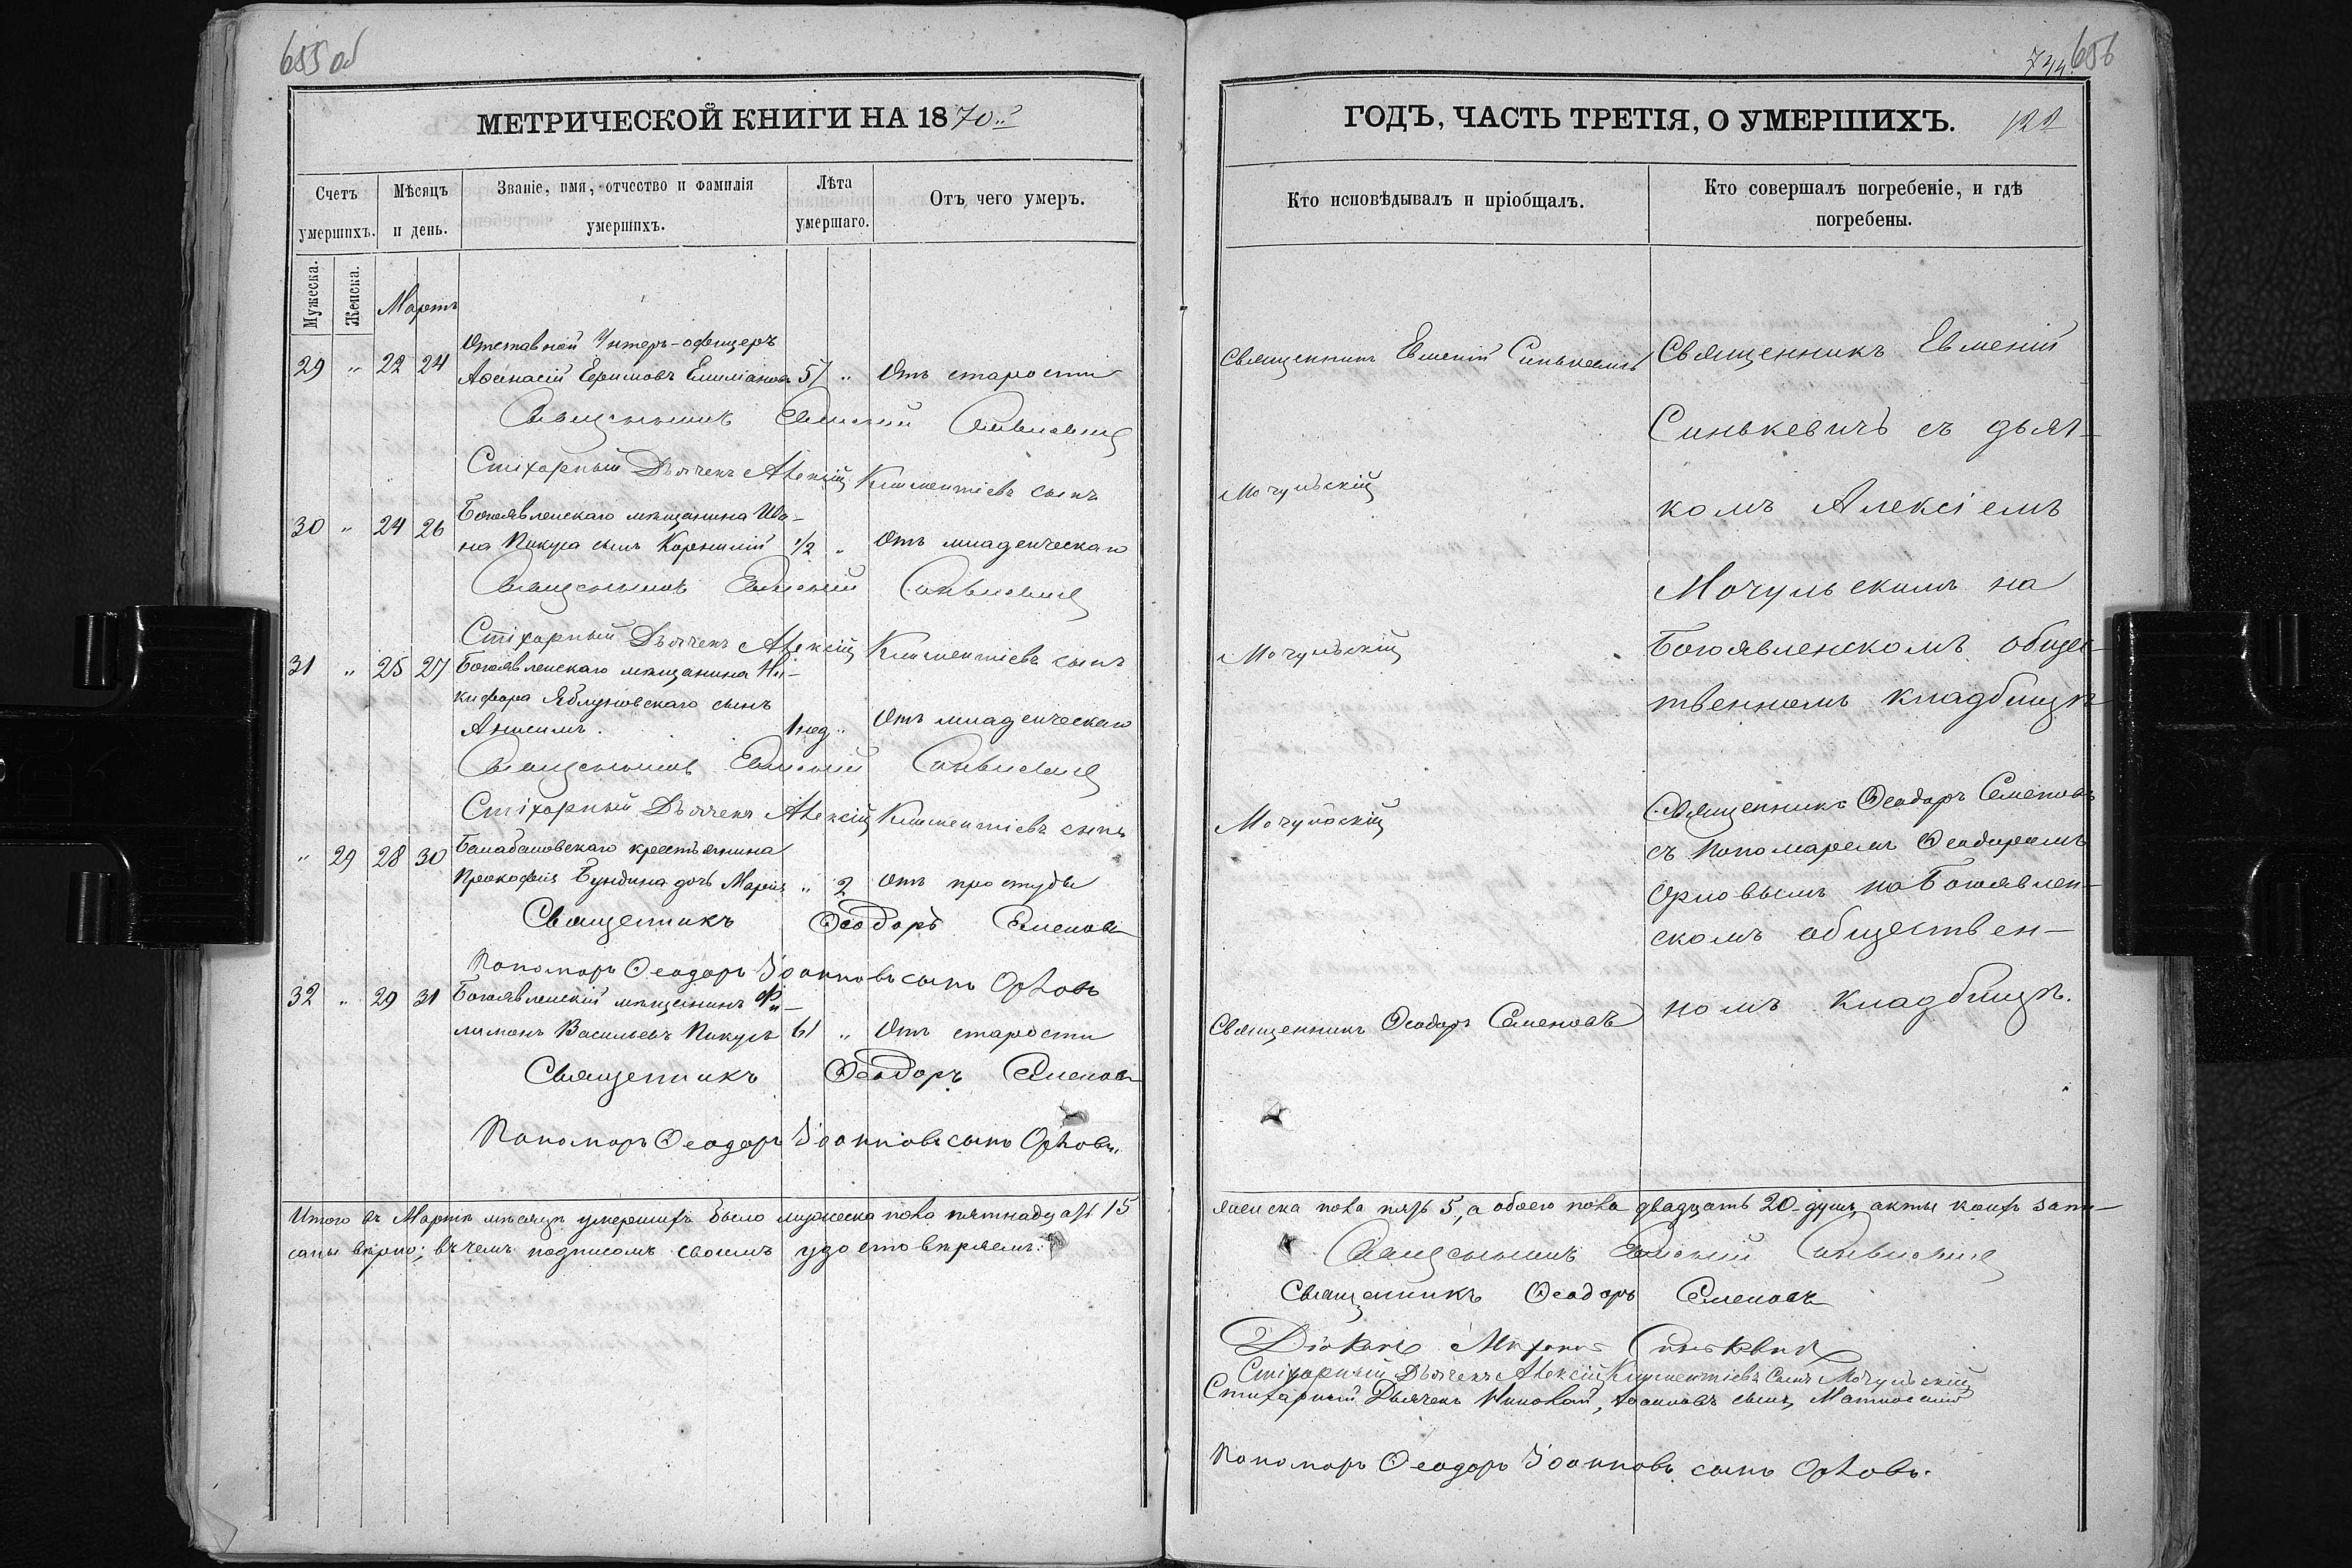 655 об
МЕТРИЧЕСКОЙ КНИГИ НА 1870й
Счетъ умершихъ.
Мѣсяцъ и день.
Званіе, имя, отчество и фамилія умершихъ.
Лѣта умершаго.
Отъ чего умеръ.
Мужеска.
Женска.
Мартъ
Отставной Унтеръ-офицеръ
29 " 22 24 Аѳанасій Ефимовъ Емиліановъ 57 " Отъ старости
Священникъ Евменій Синькевичъ
Стіхарный Дьячекъ Алексій Климентіевъ сынъ
Богоявленскаго мѣщанина Ива-
30 " 24 26 на Пикуза сынъ Корнилій 1/2 " Отъ младенческаго
Священникъ Евменій Синькевичъ
Стіхарный Дьячекъ Алексій Климентіевъ сынъ
31 " 25 27 Богоявленскаго мѣщанина Ни-
кифора Яблуновскаго сынъ
Анисимъ. 1 нед. " Отъ младенческаго
Священникъ Евменій Синькевичъ
Стіхарный Дьячекъ Алексій Климентіевъ сынъ
" 29 28 30 Балабановскаго крестьянина
Прокофія Бундина дочь Марія " 2 Отъ простуды
Священникъ Ѳеодоръ Семеновъ
Пономарь Ѳеодоръ Іоанновъ сынъ Орловъ
32 " 29 31 Богоявленскій мѣщанинъ Фи-
лимонъ Васильевъ Пикузъ 61 " Отъ старости
Священникъ Ѳеодоръ Семеновъ
Пономарь Ѳеодоръ Іоанновъ сынъ Орловъ.
Итого въ Мартѣ мѣсяцѣ умершихъ было мужеска пола пятнадцать 15
саны вѣрно; въ чемъ подписомъ своимъ удостовѣряемъ:
656
744.
122
ГОДЪ, ЧАСТЬ ТРЕТІЯ, О УМЕРШИХЪ.
Кто исповѣдывалъ и пріобщалъ.
Кто совершалъ погребеніе, и гдѣ погребены.
Священникъ Евменій Синькевичъ
Мочульскій
Мочульскій
Мочульскій
Священникъ Ѳеодоръ Семеновъ
Священникъ Евменій
Синькевичъ съ дьяч-
комъ Алексіемъ
Мочульскимъ на
Богоявленскомъ общес-
твенномъ кладбищѣ
Священникъ Ѳеодоръ Семеновъ
съ Пономаремъ Ѳеодоромъ
Орловымъ на Богоявлен-
скомъ обществен-
номъ кладбищѣ.
женска пола пять 5, а обоего пола двадцать 20 душъ, акты коихъ запи-
Священникъ Евменій Синькевичъ
Священникъ Ѳеодоръ Семеновъ
Діаконъ Синькевичъ
Стіхарный Дьячекъ Алексій Климентіевъ Сынъ Мочульскій
Стихарный Дьячекъ Николай, Іоанновъ сынъ
Пономарь Ѳеодоръ Іоанновъ сынъ Орловъ.